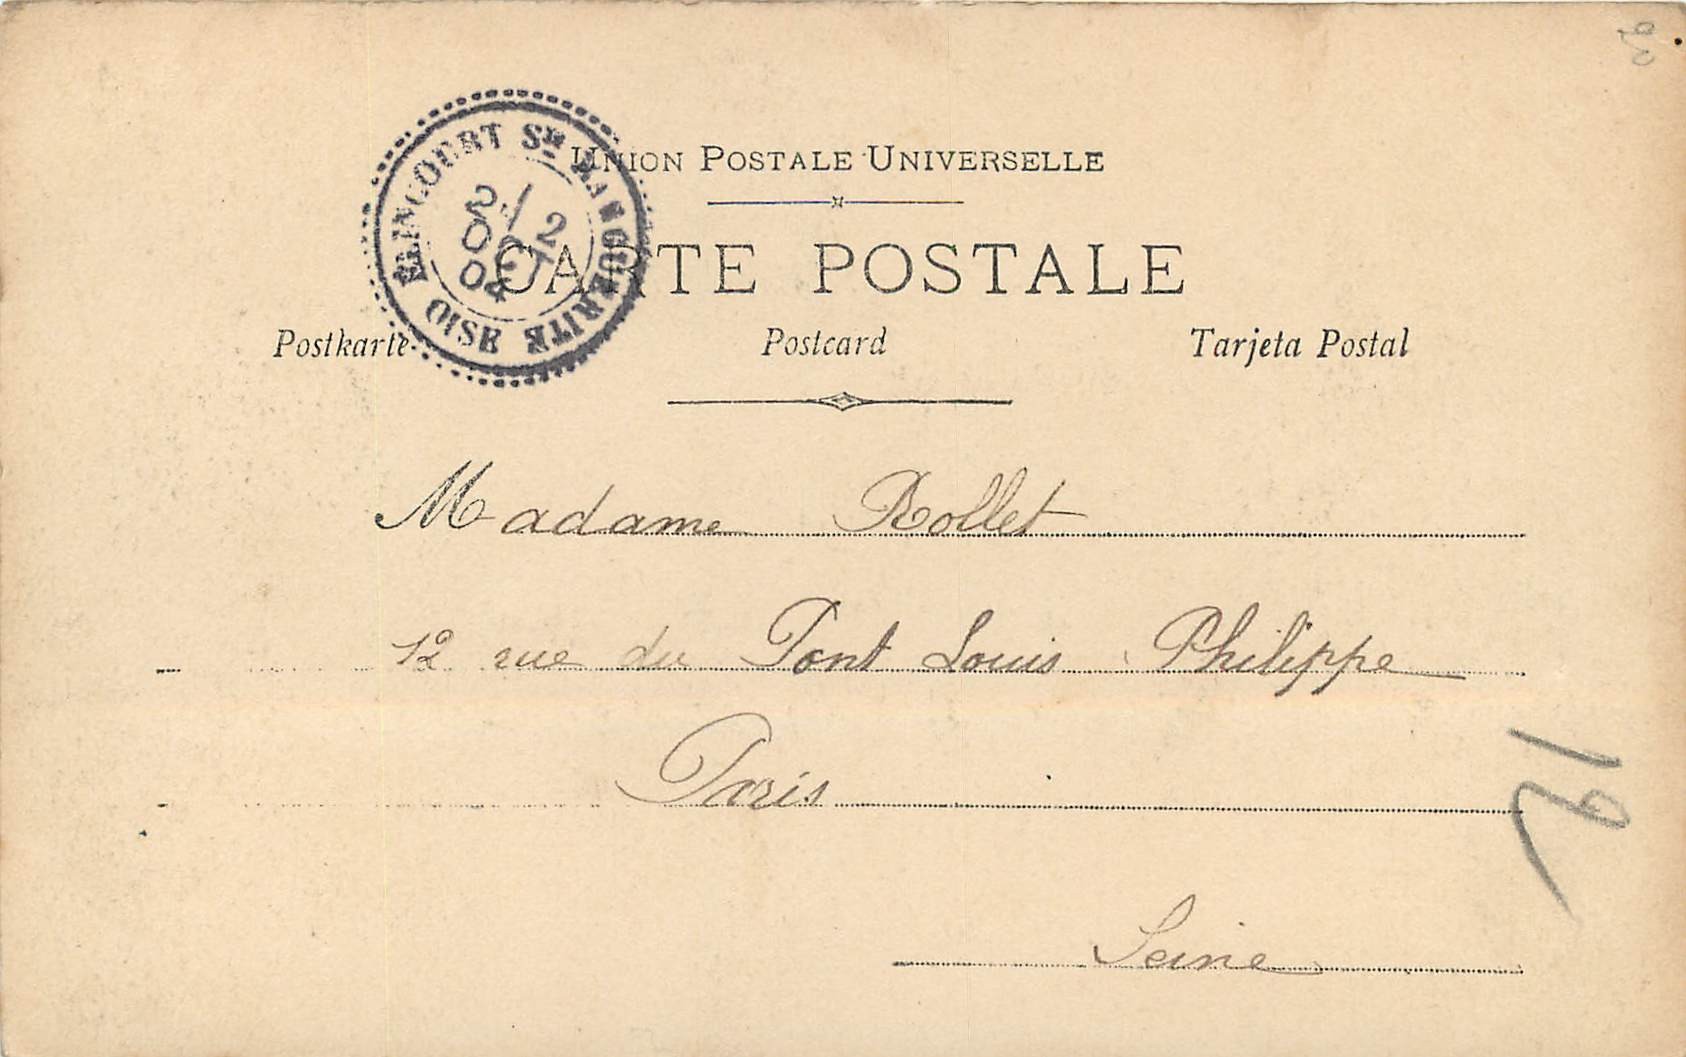 UNION POSTALE UNIVERSELLE
ELINCOURT Ste MARGUERITE
2 / 2
OCT
04
OISE
CARTE POSTALE
Postkarte Postcard Tarjeta Postal
Madame Rollet
12 rue du Pont Louis Philippe
Paris
Seine